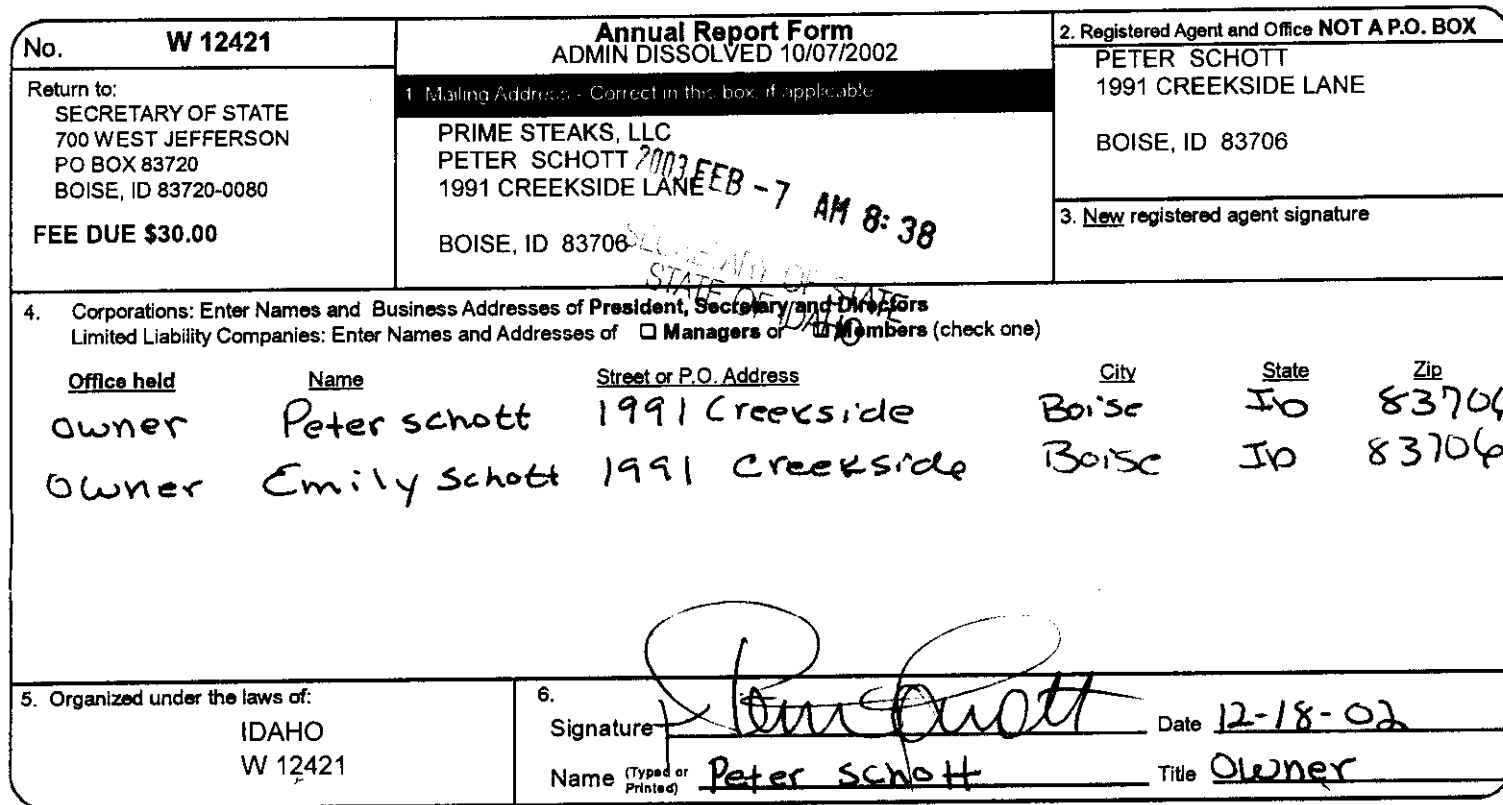 No. W 12421
Return to:
SECRETARY OF STATE
700 WEST JEFFERSON
PO BOX 83720
BOISE, ID 83720-0080
FEE DUE $30.00
Annual Report Form
ADMIN DISSOLVED 10/07/2002
1. Mailing Address - Correct in this box, if applicable
PRIME STEAKS, LLC
PETER SCHOTT
1991 CREEKSIDE LANE
BOISE, ID 83706
2003 FEB -7 AM 8:38
SECRETARY OF STATE
STATE OF IDAHO
2. Registered Agent and Office NOT A P.O. BOX
PETER SCHOTT
1991 CREEKSIDE LANE
BOISE, ID 83706
3. New registered agent signature
4. Corporations: Enter Names and Business Addresses of President, Secretary and Directors
Limited Liability Companies: Enter Names and Addresses of ☐ Managers or ☐ Members (check one)
Office held Name Street or P.O. Address City State Zip
owner Peter schott 1991 Creekside Boise ID 83706
owner Emily Schott 1991 Creekside Boise ID 83706
5. Organized under the laws of:
IDAHO
W 12421
6.
Signature Date 12-18-02
Name (Typed or Printed) Peter Schott Title Owner